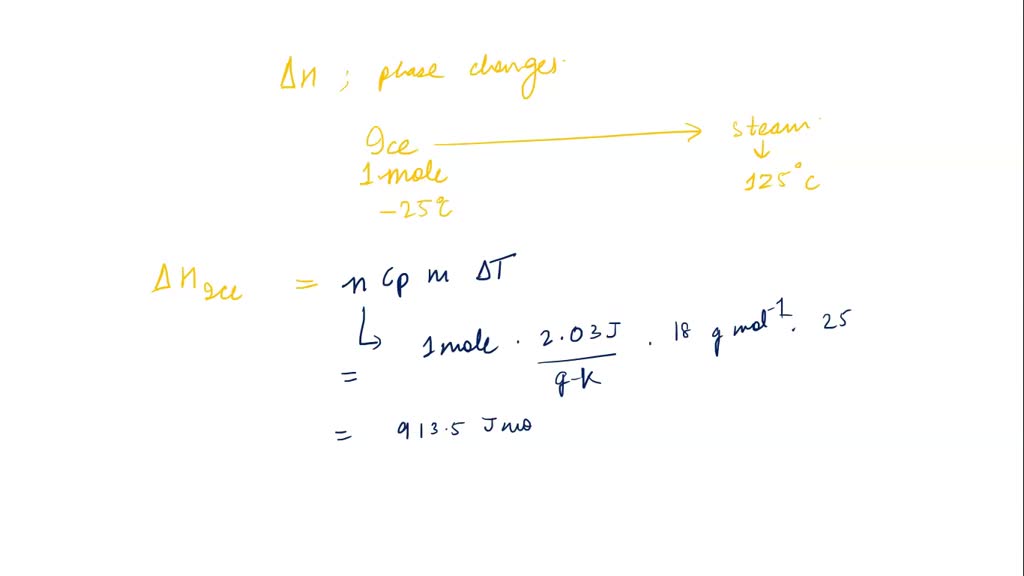 ΔH ; phase changes.
Ice → steam.
1 mole ↓
-25°C 125°C
ΔH Ice = n Cp m ΔT
↳ 1 mole · 2.03 J / g-K · 18 g mol⁻¹ · 25
=
= 913.5 J mo